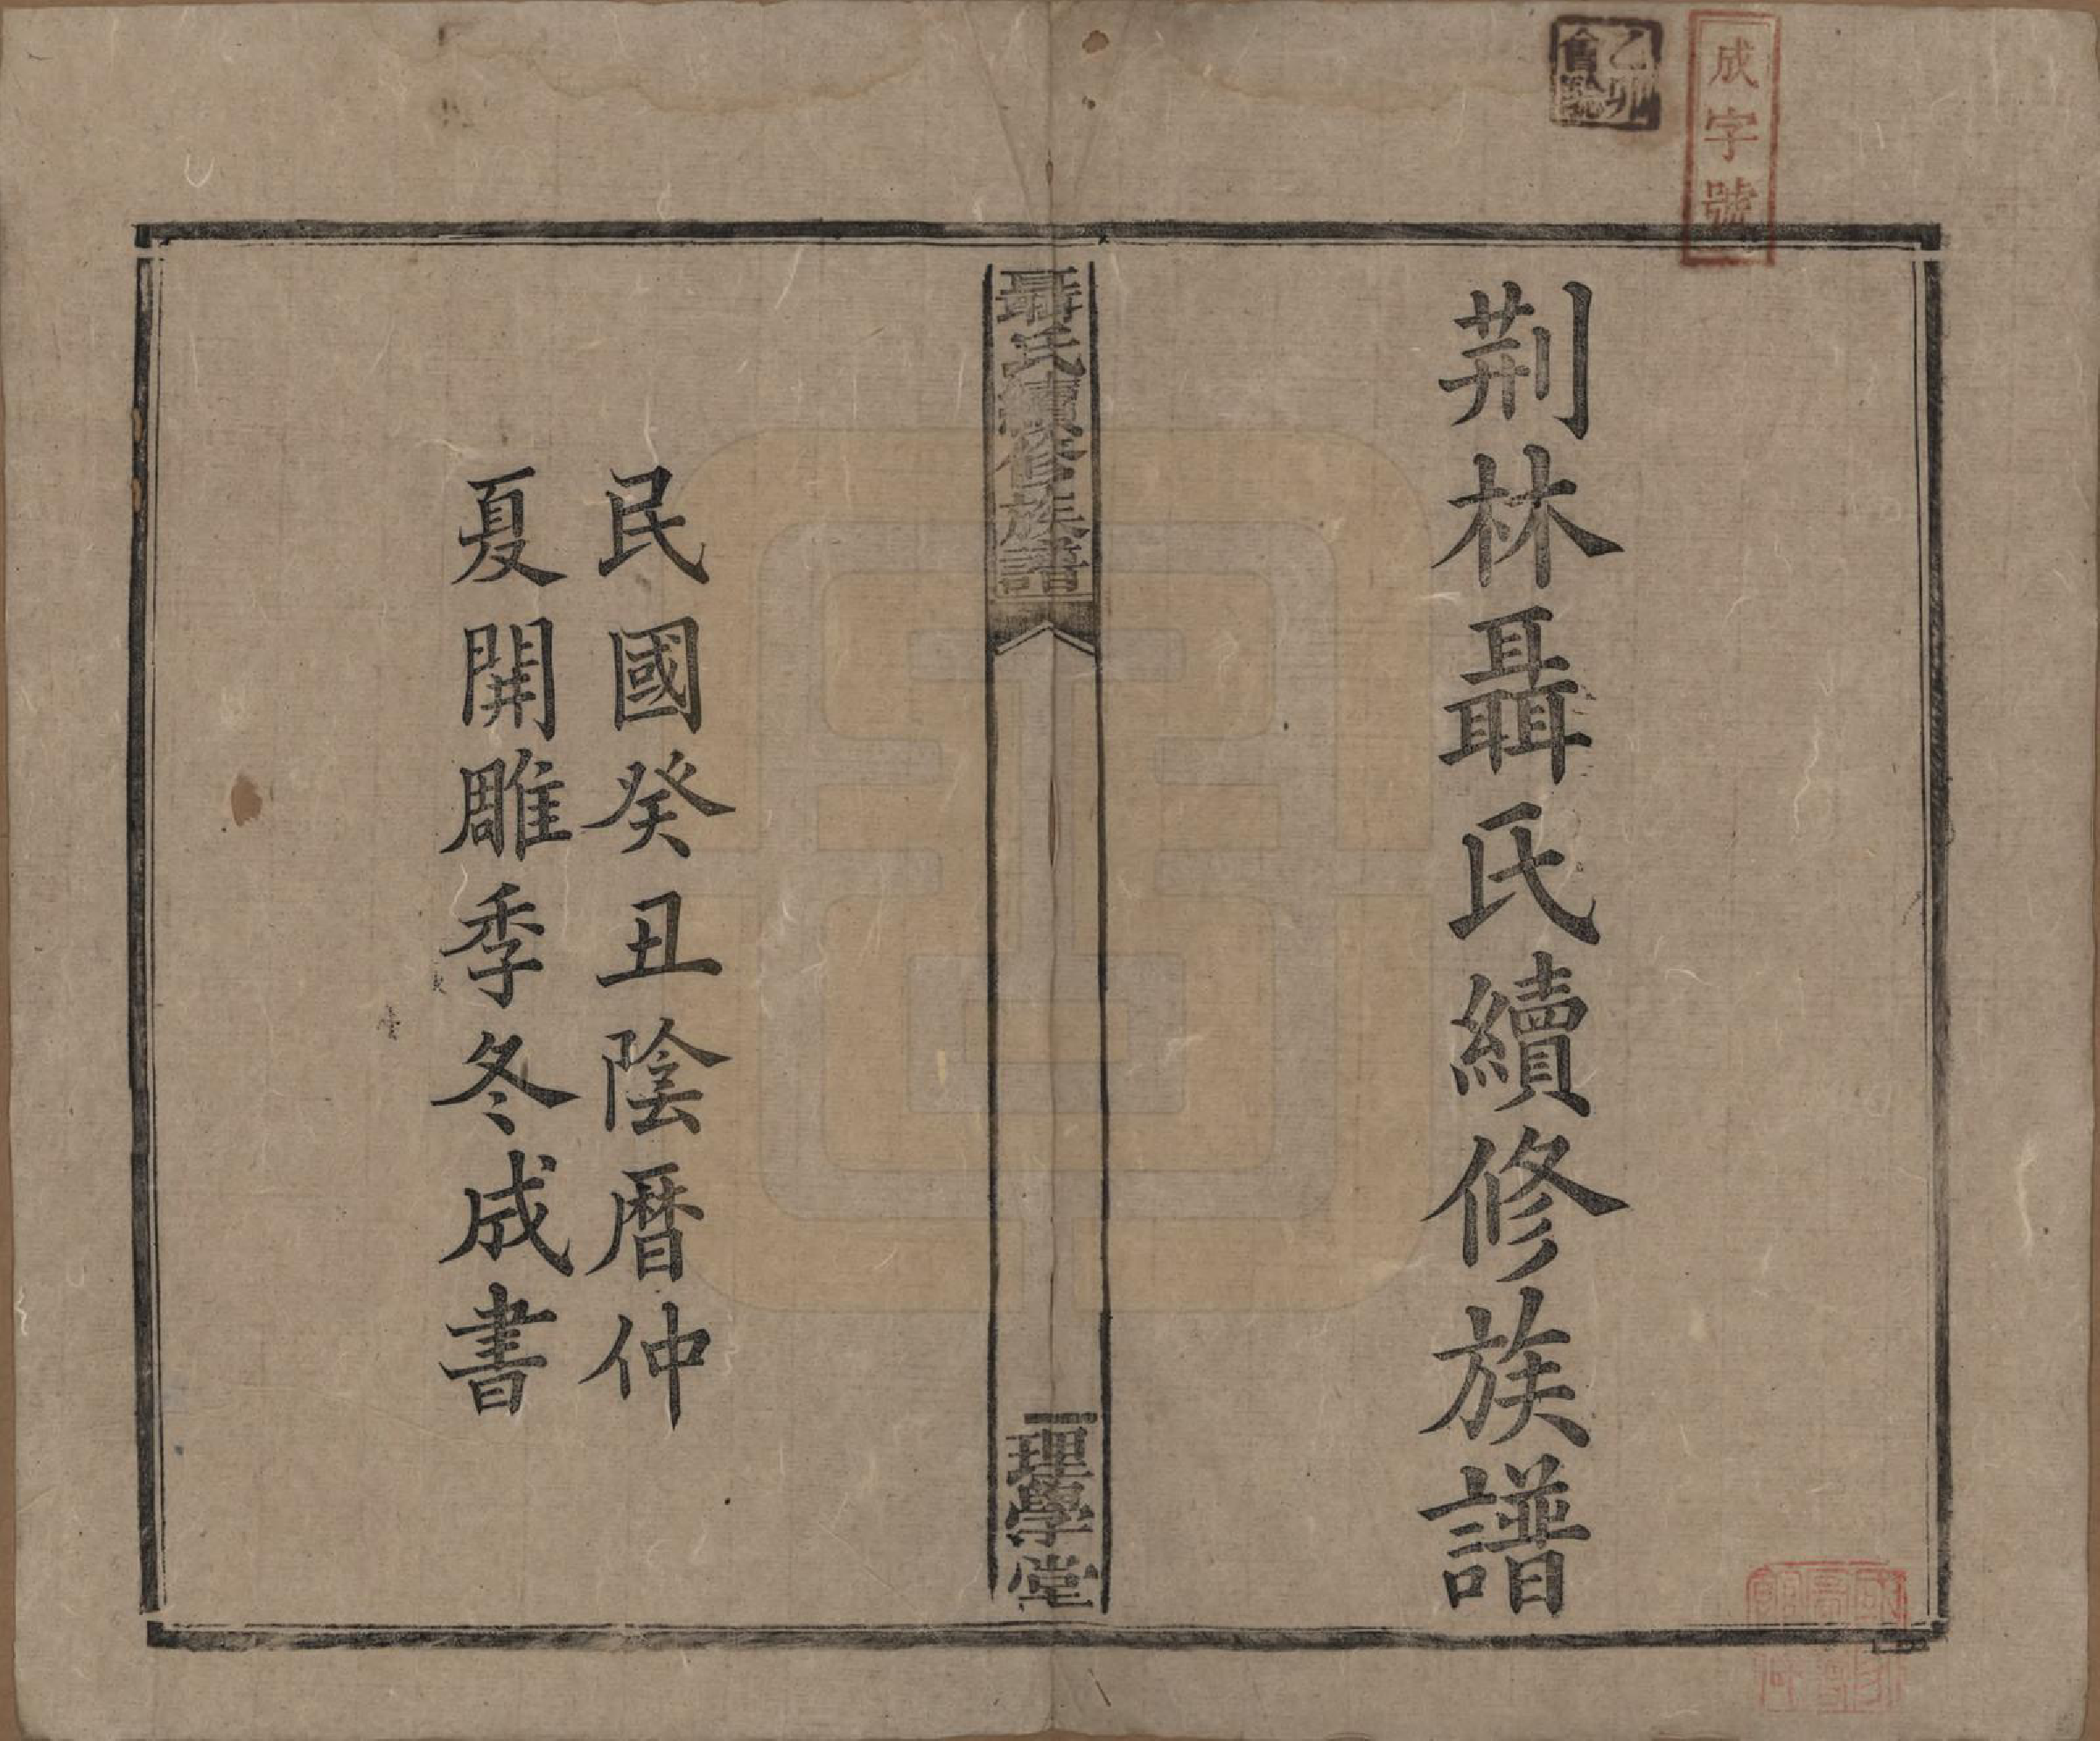 成字號
乙卯會驗
荆林聶氏續修族譜
聶氏續修族譜
理學堂
民國癸丑陰曆仲
夏開雕季冬成書